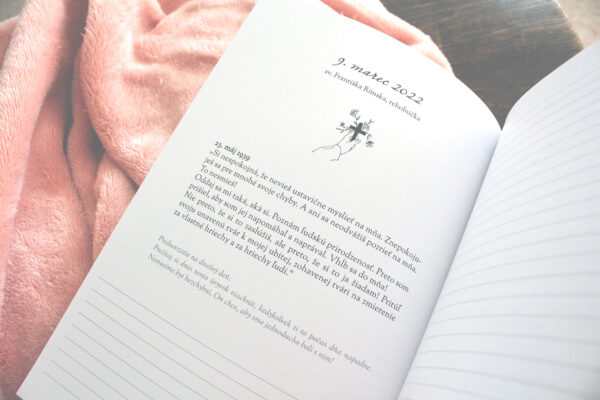 9. marec 2022
sv. Františka Rímska, rehoľníčka
23. máj 1939
"Si nespokojná, že nevieš ustavične myslieť na mňa. Znepokoju-
ješ sa pre mnohé svoje chyby. A ani sa neodvážiš pozrieť na mňa.
To nesmieš!
Oddaj sa mi taká, aká si. Poznám ľudskú prirodzenosť. Preto som
prišiel, aby som jej napomáhal a naprával. Vhĺb sa do mňa!
Nie preto, že si to zaslúžiš, ale preto, že si to ja žiadam! Pritúľ
svoju unavenú tvár k mojej ubitej, zohavenej tvári na zmierenie
za vlastné hriechy a za hriechy ľudí."
Povzbudenie na dnešný deň:
Prečítaj si dnes tento úryvok viackrát, kedykoľvek ti to počas dňa napadne.
Nemusíme byť bezchybní, On chce, aby sme jednoducho boli s ním!